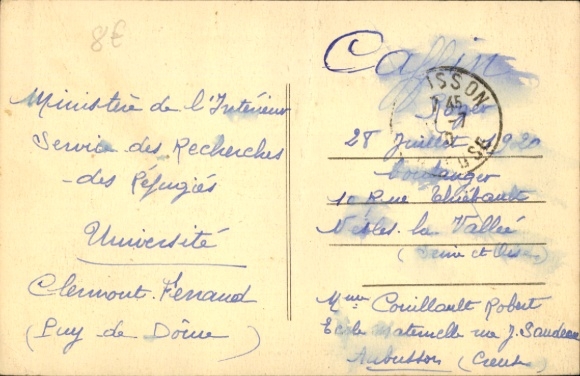 8€
Ministère de l'Intérieur
Service des Recherches
des Réfugiés
Université
Clermont-Ferrand
(Puy de Dôme)
Caffin
Roger
28 Juillet 1920
boulanger
10 Rue Thiébault
Nesles-la Vallée
(Seine et Oise)
Mme Couillault Robert
Ecole maternelle rue J. Sandeau
Aubusson (Creuse)
USSON
CREUSE